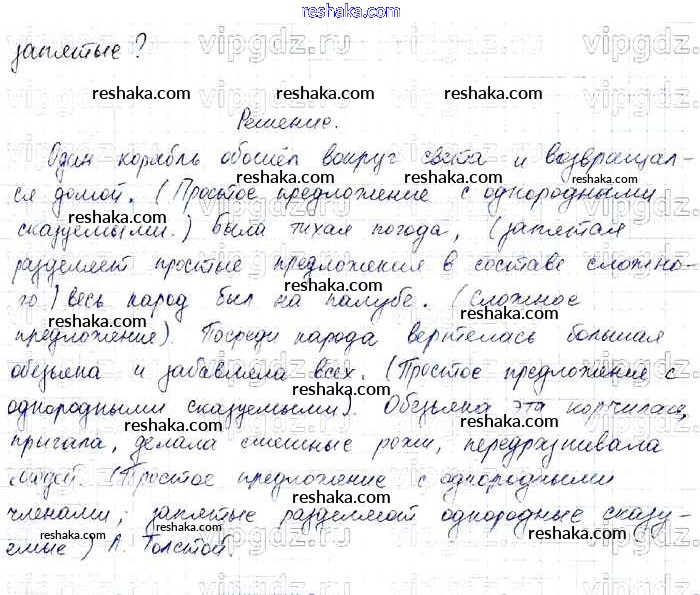 reshaka.com
запятые?
Решение.
Один корабль обошёл вокруг света и возвращал-
ся домой. (Простое предложение с однородными
сказуемыми.) Была тихая погода, (запятая
разделяет простые предложения в составе сложно-
го) весь народ был на палубе. (Сложное
предложение). Посреди народа вертелась большая
обезьяна и забавляла всех. (Простое предложение с
однородными сказуемыми). Обезьяна эта корчилась,
прыгала, делала смешные рожи, передразнивала
людей. (Простое предложение с однородными
членами, запятые разделяют однородные сказу-
емые) Л. Толстой.